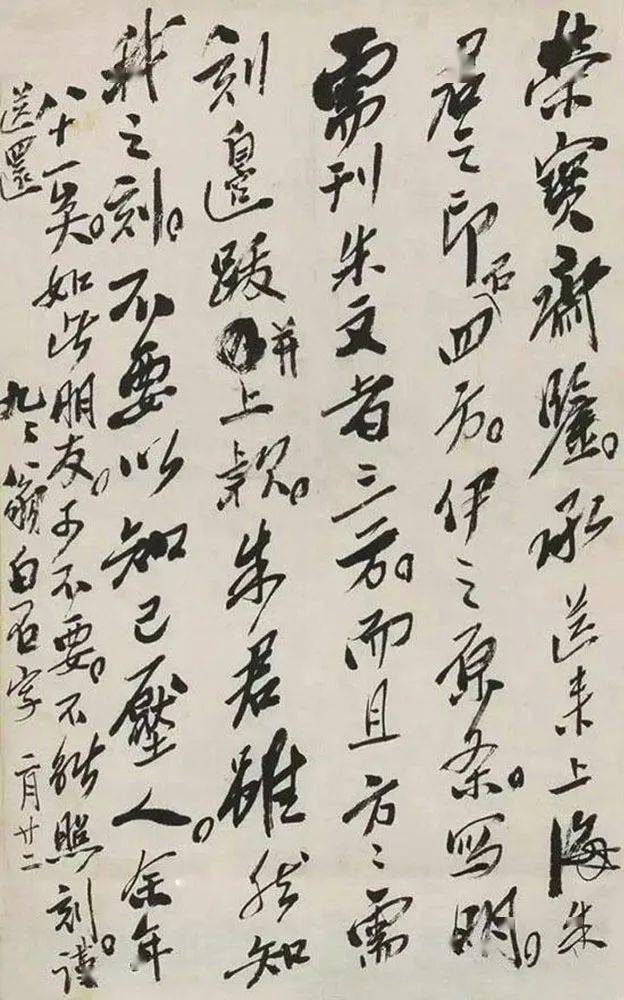 榮寶齋鑒。承送來上海朱
君之印石四方。伊之原条。寫明。
需刊朱文者三方。而且方〻需
刻邊跋并上款。朱君雖然知
我之刻。不要以知己壓人。余年
八十一矣。如此朋友。予不要。不能照刻。謹
送還 白石字 二月廿二